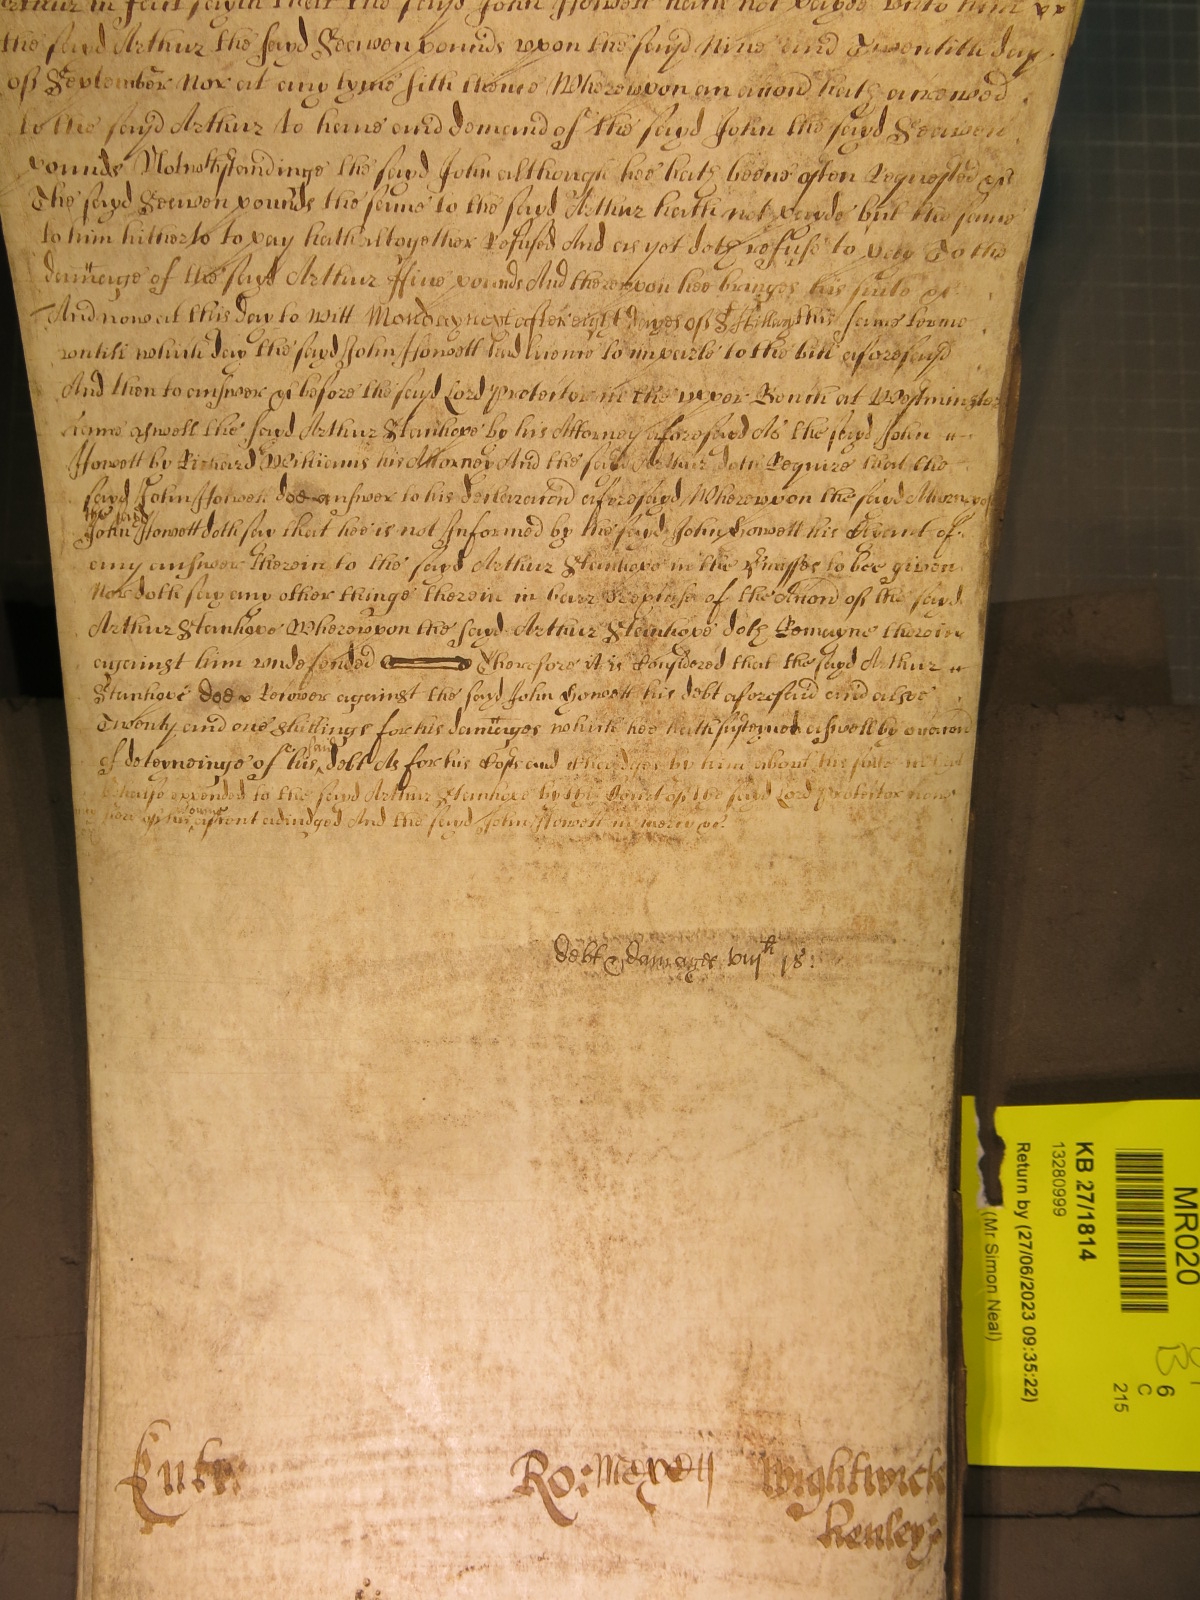 Arthur in fact sayth that the sayd John Howett hath not payde unto him
the sayd Arthur the sayd Seaven pounds upon the sayd Nine and Twentith day
of September Nor at any tyme sith thence Wherewpon an accond hath accrewed
to the sayd Arthur to have and demand of the sayd John the sayd Seaven
pounds Notwthstandinge the sayd John although hee hath beene often Requested
The sayd Seaven pounds the same to the sayd Arthur hath not payde but the same
to him hitherto to pay hath altogether Refused And as yet doth refuse to pay To the
damage of the sayd Arthur ffive pounds And therewpon hee bringes his suite
And now at this day to witt Monday next after eight dayes of St Hillary this same terme
untill which day the sayd John Howett had licence to imparle to the bill aforesayd
And then to answer before the sayd Lord Protector in the upper Bench at Westminster
came aswell the sayd Arthur Stanhope by his Attorney aforesayd As the sayd John
Howett by Richard Williams his Attorney And the sayd Arthur doth Require that the
sayd John Howett doe answer to his declaracond aforesayd Wherewpon the sayd Attorney of
the sayd
John Howett doth say that hee is not Informed by the sayd John Howett his Clyent of
any answer therein to the sayd Arthur Stanhope in the to bee given
Nor doth say any other thinge therein in barr of the accond of the sayd
Arthur Stanhope Wherewpon the sayd Arthur Stanhope doth Remayne therein
against him undefended Therefore it is Considered that the sayd Arthur
Stanhope doe Recover against the sayd John Howett his debt aforesaid and alsoe
Twenty and one Shillings for his damages which hee hath susteyned aswell by occacond
of deteyneinge of his said debt As for his Costs and Chardges by him about his suite in that
behalfe expended to the sayd Arthur Stanhope by the Court of the sayd Lord Protector nowe
here of his owne assent adiudged And the sayd John Howett in mercy &c
debt & damages viijli js:
Ent:
Ro: Meredith
Wightwick
Henley
MR020
KB 27/1814
13280999
Return by (27/06/2023 09:35:22)
(Mr Simon Neal)
6
C
215